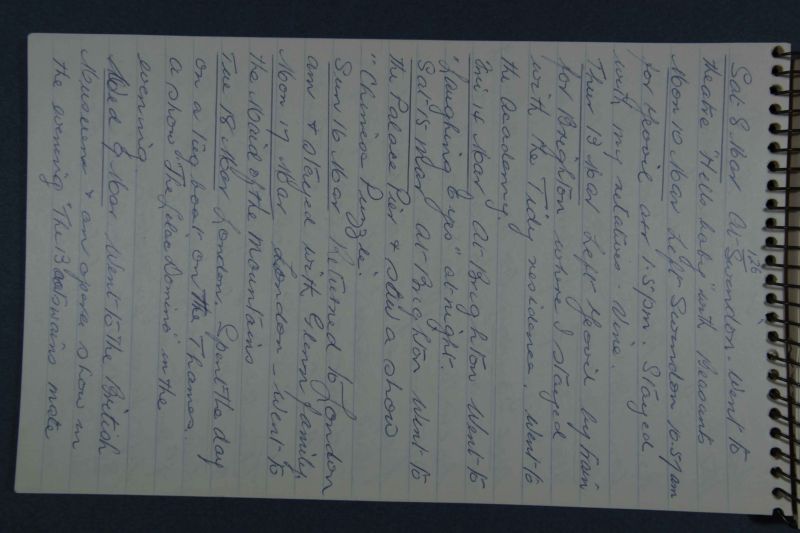 126
Sat 8 Mar At Swindon. Went to
theatre "Hello baby" with Pleasants
Mon 10 Mar Left Swindon 10.57am
for Yeovil arr 1.51pm. Stayed
with my relatives - Vine.
Thur 13 Mar Left Yeovil by train
for Brighton where I stayed
with the Tidy residence. Went to
the Academy.
Fri 14 Mar At Brighton Went to
"Laughing Eyes" at night.
Sat 15 Mar At Brighton Went to
the Palace Pier & saw a show
"Chinese Puzzle."
Sun 16 Mar Returned to London
am & stayed with Glenn family.
Mon 17 Mar London - Went to
the Maid of the Mountains
Tue 18 Mar London. Spent the day
on a tug boat on the Thames.
a show "The Lilac Domino" in the
evening
Wed Mar Went to the British
Museum & an opera show in
the evening "The Boatswains mate